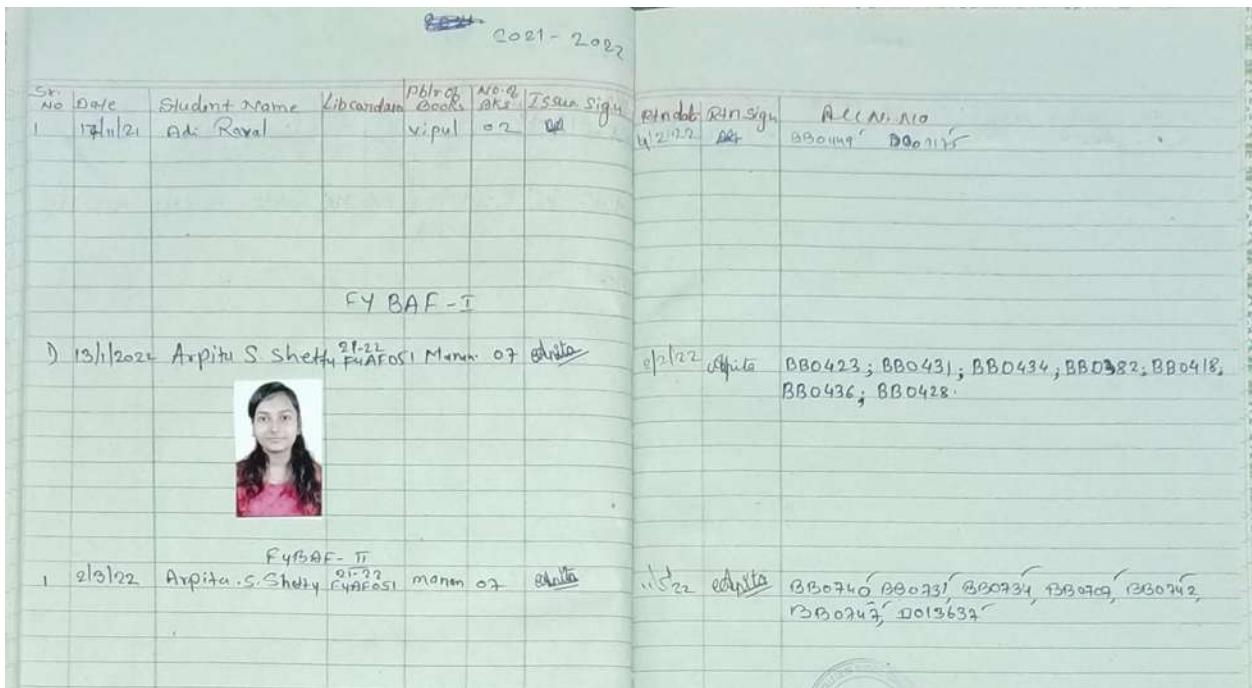 2021-2022
Sr. No Date Student Name Libcardno Pblr of Books No. of Bks Issue Sign Rtn date Rtn Sign Acc N. No
1 17/11/21 Adi Raval vipul 02 4/2/22 BB01149
FY BAF-I
1) 13/1/2022 Arpita S Shetty 21-22 FYAF051 Manan 07 Arpita 2/2/22 Arpita BB0423; BB0431; BB0434; BB0382; BB0418;
BB0436; BB0428.
FYBAF-II
1 2/3/22 Arpita.S.Shetty 21-22 FYAF051 manan 07 BB0740 BB0731, BB0734, BB0709, BB0742,
BB0747, D013637